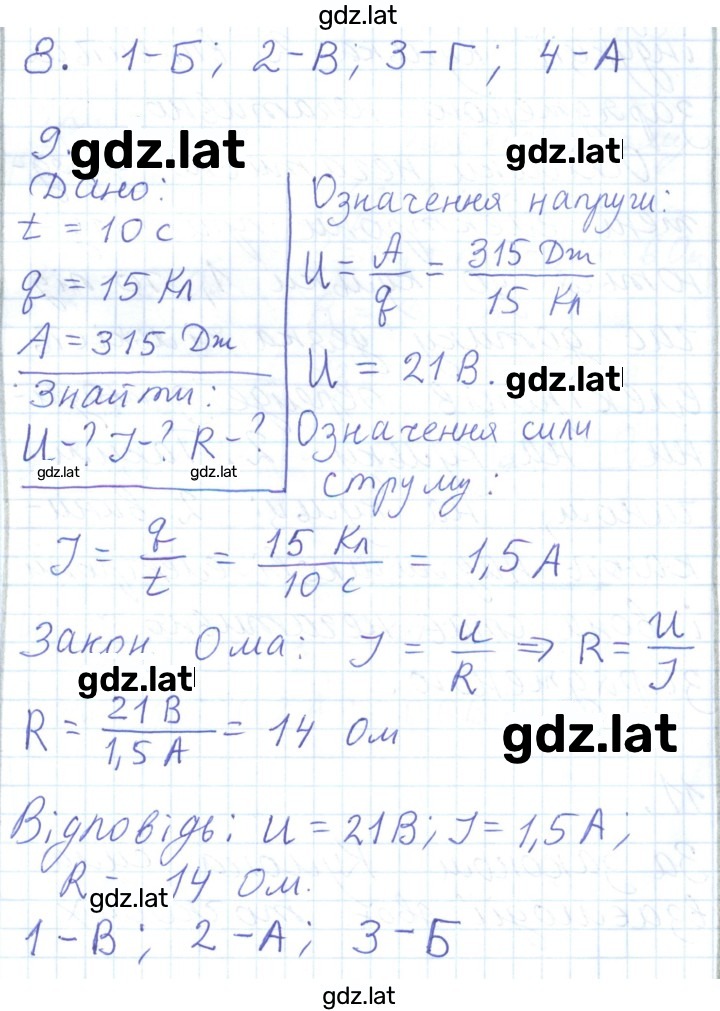 gdz.lat
8. 1-Б; 2-В; 3-Г; 4-А
9. gdz.lat gdz.lat
Дано:
t = 10 с
q = 15 Кл
A = 315 Дж
Знайти:
U-? I-? R-?
gdz.lat gdz.lat
Означення напруги:
U = A/q = 315 Дж/15 Кл
U = 21 В. gdz.lat
Означення сили
струму:
I = q/t = 15 Кл/10 с = 1,5 А
Закон Ома: I = U/R ⇒ R = U/I
gdz.lat
R = 21 В/1,5 А = 14 Ом gdz.lat
Відповідь: U = 21В; I = 1,5 А;
R = 14 Ом.
gdz.lat
1-В; 2-А; 3-Б
gdz.lat